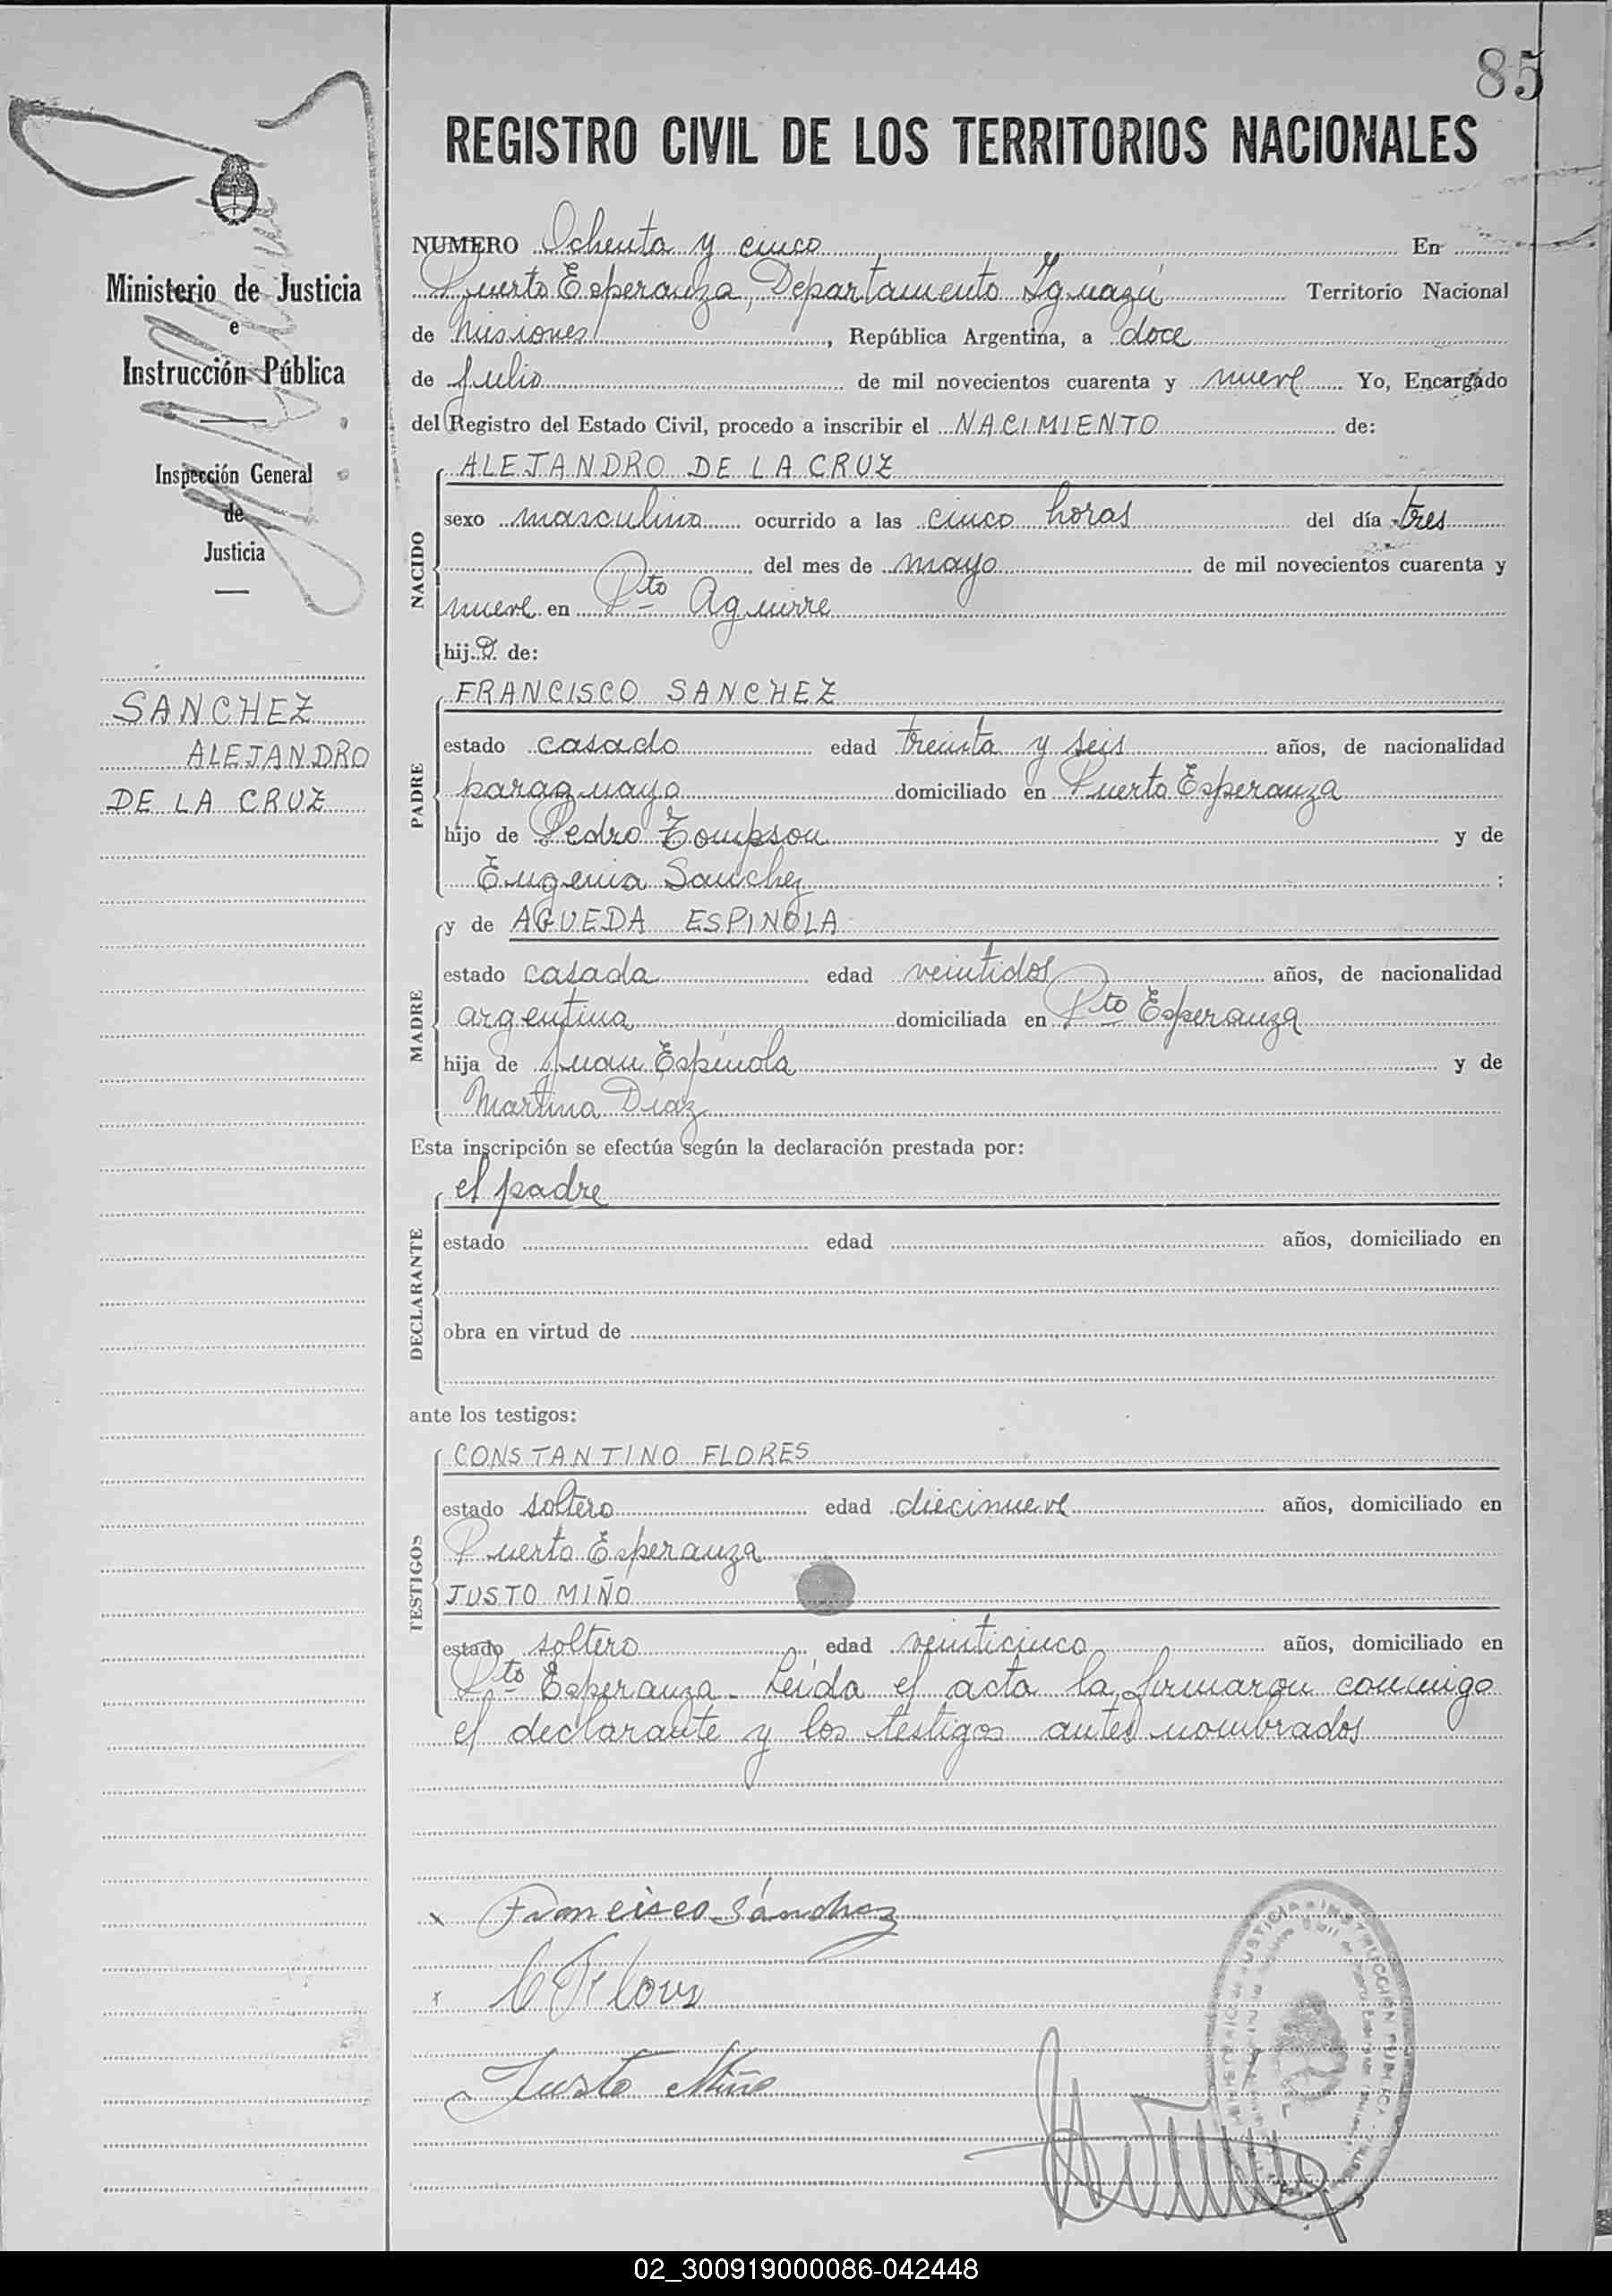 85
REGISTRO CIVIL DE LOS TERRITORIOS NACIONALES
Ministerio de Justicia
e
Instrucción Pública
Inspección General
de
Justicia
SANCHEZ
ALEJANDRO
DE LA CRUZ
NUMERO Ochenta y cinco En
Puerto Esperanza, Departamento Iguazú Territorio Nacional
de Misiones, República Argentina, a doce
de Julio de mil novecientos cuarenta y nueve Yo, Encargado
del Registro del Estado Civil, procedo a inscribir el NACIMIENTO de:
NACIDO
ALEJANDRO DE LA CRUZ
sexo masculino ocurrido a las cinco horas del día tres
del mes de mayo de mil novecientos cuarenta y
nueve en Pto Aguirre
hijo de:
PADRE
FRANCISCO SANCHEZ
estado casado edad treinta y seis años, de nacionalidad
paraguayo domiciliado en Puerto Esperanza
hijo de Pedro Tompson y de
Eugenia Sanchez ;
MADRE
y de AGUEDA ESPINOLA
estado casada edad veintidos años, de nacionalidad
argentina domiciliada en Pto Esperanza
hija de Juan Espinola y de
Martina Diaz
Esta inscripción se efectúa según la declaración prestada por:
DECLARANTE
el padre
estado edad años, domiciliado en
obra en virtud de
ante los testigos:
TESTIGOS
CONSTANTINO FLORES
estado soltero edad diecinueve años, domiciliado en
Puerto Esperanza
JUSTO MIÑO
estado soltero, edad veinticinco años, domiciliado en
Pto Esperanza. Leída el acta la firmaron conmigo
el declarante y los testigos antes nombrados
x Francisco Sánchez
x C Flores
Justo Miño
JUSTICIA INSTRUCCIÓN PUBLICA
02_300919000086-042448